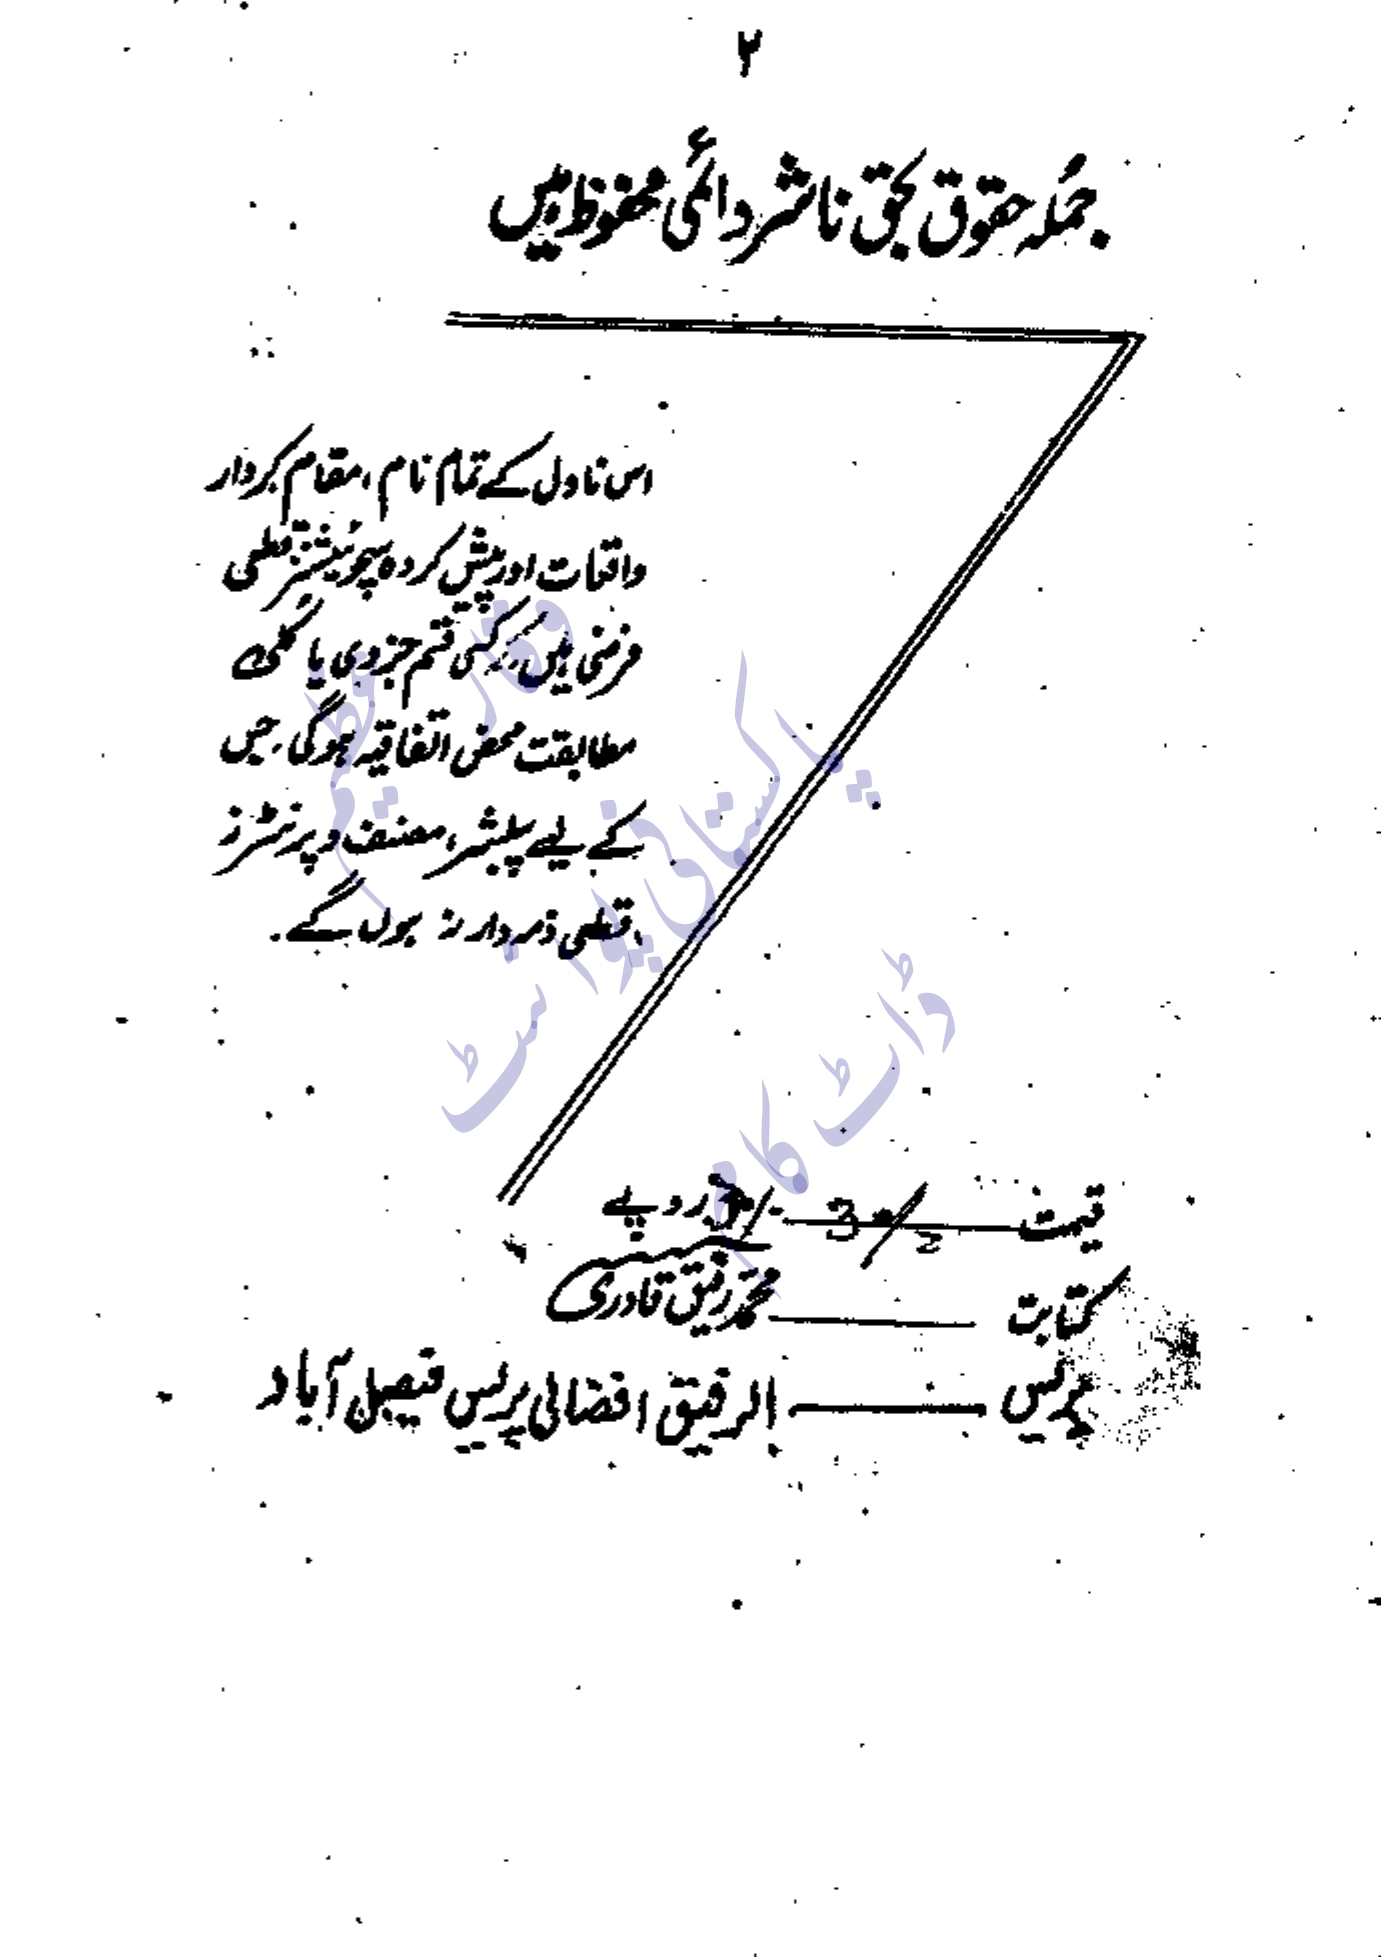 ۲
جملہ حقوق بحق ناشر دائمی محفوظ ہیں
اس ناول کے تمام نام، مقام کردار
واقعات اور پیش کردہ سچوئیشنز قطعی
فرضی ہیں۔ کسی قسم جزوی یا کلی
مطابقت محض اتفاقیہ ہوگی۔ جس
کے لیے پبلیشر، مصنف و پرنٹرز
قطعی ذمہ دار نہ ہوں گے۔
قیمت روپے
کتابت محمد رفیق قادری
پریس الرفیق افضالی پریس فیصل آباد
پاکستانی پوائنٹ
ڈاٹ کام